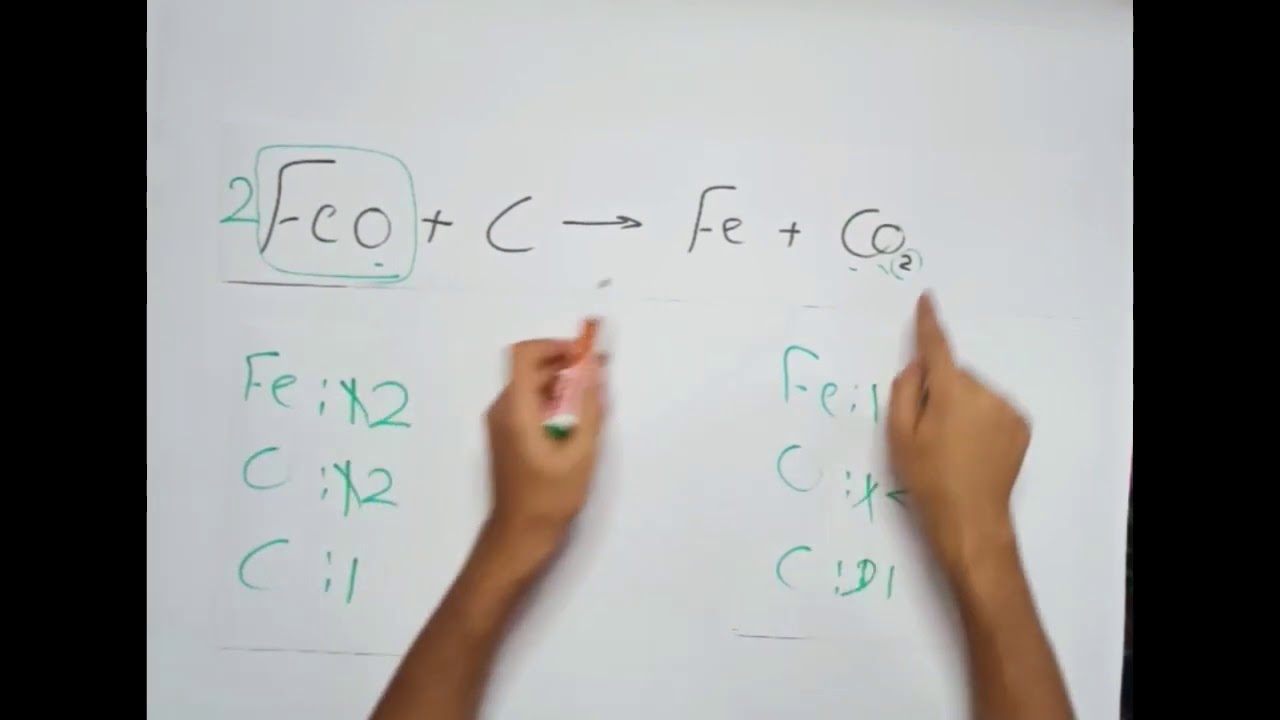 2 FeO + C → Fe + CO₂
Fe : 1 2
C : 1 2
C : 1
Fe : 1
C :
C : 1